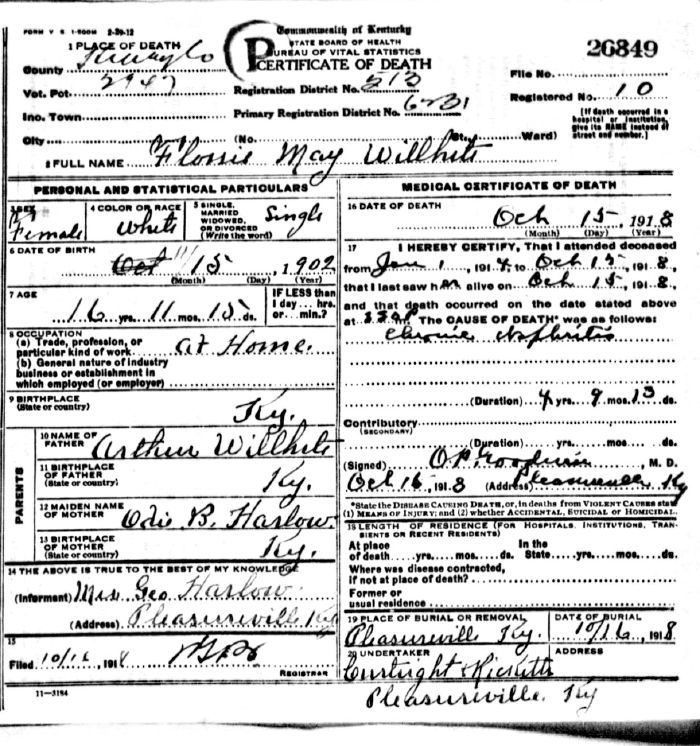 FORM V. S. 1-500M 2-29-12
Commonwealth of Kentucky
STATE BOARD OF HEALTH
BUREAU OF VITAL STATISTICS
CERTIFICATE OF DEATH
26849
1 PLACE OF DEATH
County
Vot. Pct. 2947
Registration District No. 513
File No.
Inc. Town
Primary Registration District No. 6231
Registered No. 10
City (No. St., Ward)
[If death occurred in a hospital or institution, give its NAME instead of street and number.]
2 FULL NAME Flossie May Willhite
PERSONAL AND STATISTICAL PARTICULARS
3 SEX
Female
4 COLOR OR RACE
White
5 SINGLE, MARRIED WIDOWED, OR DIVORCED (Write the word)
Single
6 DATE OF BIRTH
Oct 11/15, 1902
(Month) (Day) (Year)
7 AGE
16 yrs. 11 mos. 15 ds.
IF LESS than 1 day ... hrs. or ... min.?
8 OCCUPATION
(a) Trade, profession, or particular kind of work At Home.
(b) General nature of industry business or establishment in which employed (or employer)
9 BIRTHPLACE
(State or country) Ky.
PARENTS
10 NAME OF FATHER Arthur Willhite
11 BIRTHPLACE OF FATHER
(State or country) Ky.
12 MAIDEN NAME OF MOTHER Odie B. Harlow.
13 BIRTHPLACE OF MOTHER
(State or country) Ky.
14 THE ABOVE IS TRUE TO THE BEST OF MY KNOWLEDGE
(Informant) Mrs Geo Harlow
(Address) Pleasureville Ky
15
Filed 10/16, 1918
REGISTRAR
11—3184
MEDICAL CERTIFICATE OF DEATH
16 DATE OF DEATH
Oct 15, 1918
(Month) (Day) (Year)
17 I HEREBY CERTIFY, That I attended deceased
from Jan 1, 1914 to Oct 15, 1918,
that I last saw her alive on Oct 15, 1918,
and that death occurred on the date stated above
at The CAUSE OF DEATH* was as follows:
Chronic Nephritis
(Duration) 4 yrs. 9 mos. 13 ds.
Contributory
(SECONDARY)
(Duration) yrs. mos. ds.
(Signed) O.P. Goodwin, M. D.
Oct 16, 1918 (Address) Pleasureville Ky
*State the DISEASE CAUSING DEATH, or, in deaths from VIOLENT CAUSES state (1) MEANS OF INJURY; and (2) whether ACCIDENTAL, SUICIDAL or HOMICIDAL.
18 LENGTH OF RESIDENCE (FOR HOSPITALS, INSTITUTIONS, TRANSIENTS OR RECENT RESIDENTS)
At place of death yrs. mos. ds. In the State yrs. mos. ds.
Where was disease contracted, if not at place of death?
Former or usual residence
19 PLACE OF BURIAL OR REMOVAL
Pleasureville Ky.
DATE OF BURIAL
10/16, 1918
20 UNDERTAKER
ADDRESS
Curtright & Ricketts
Pleasureville, Ky